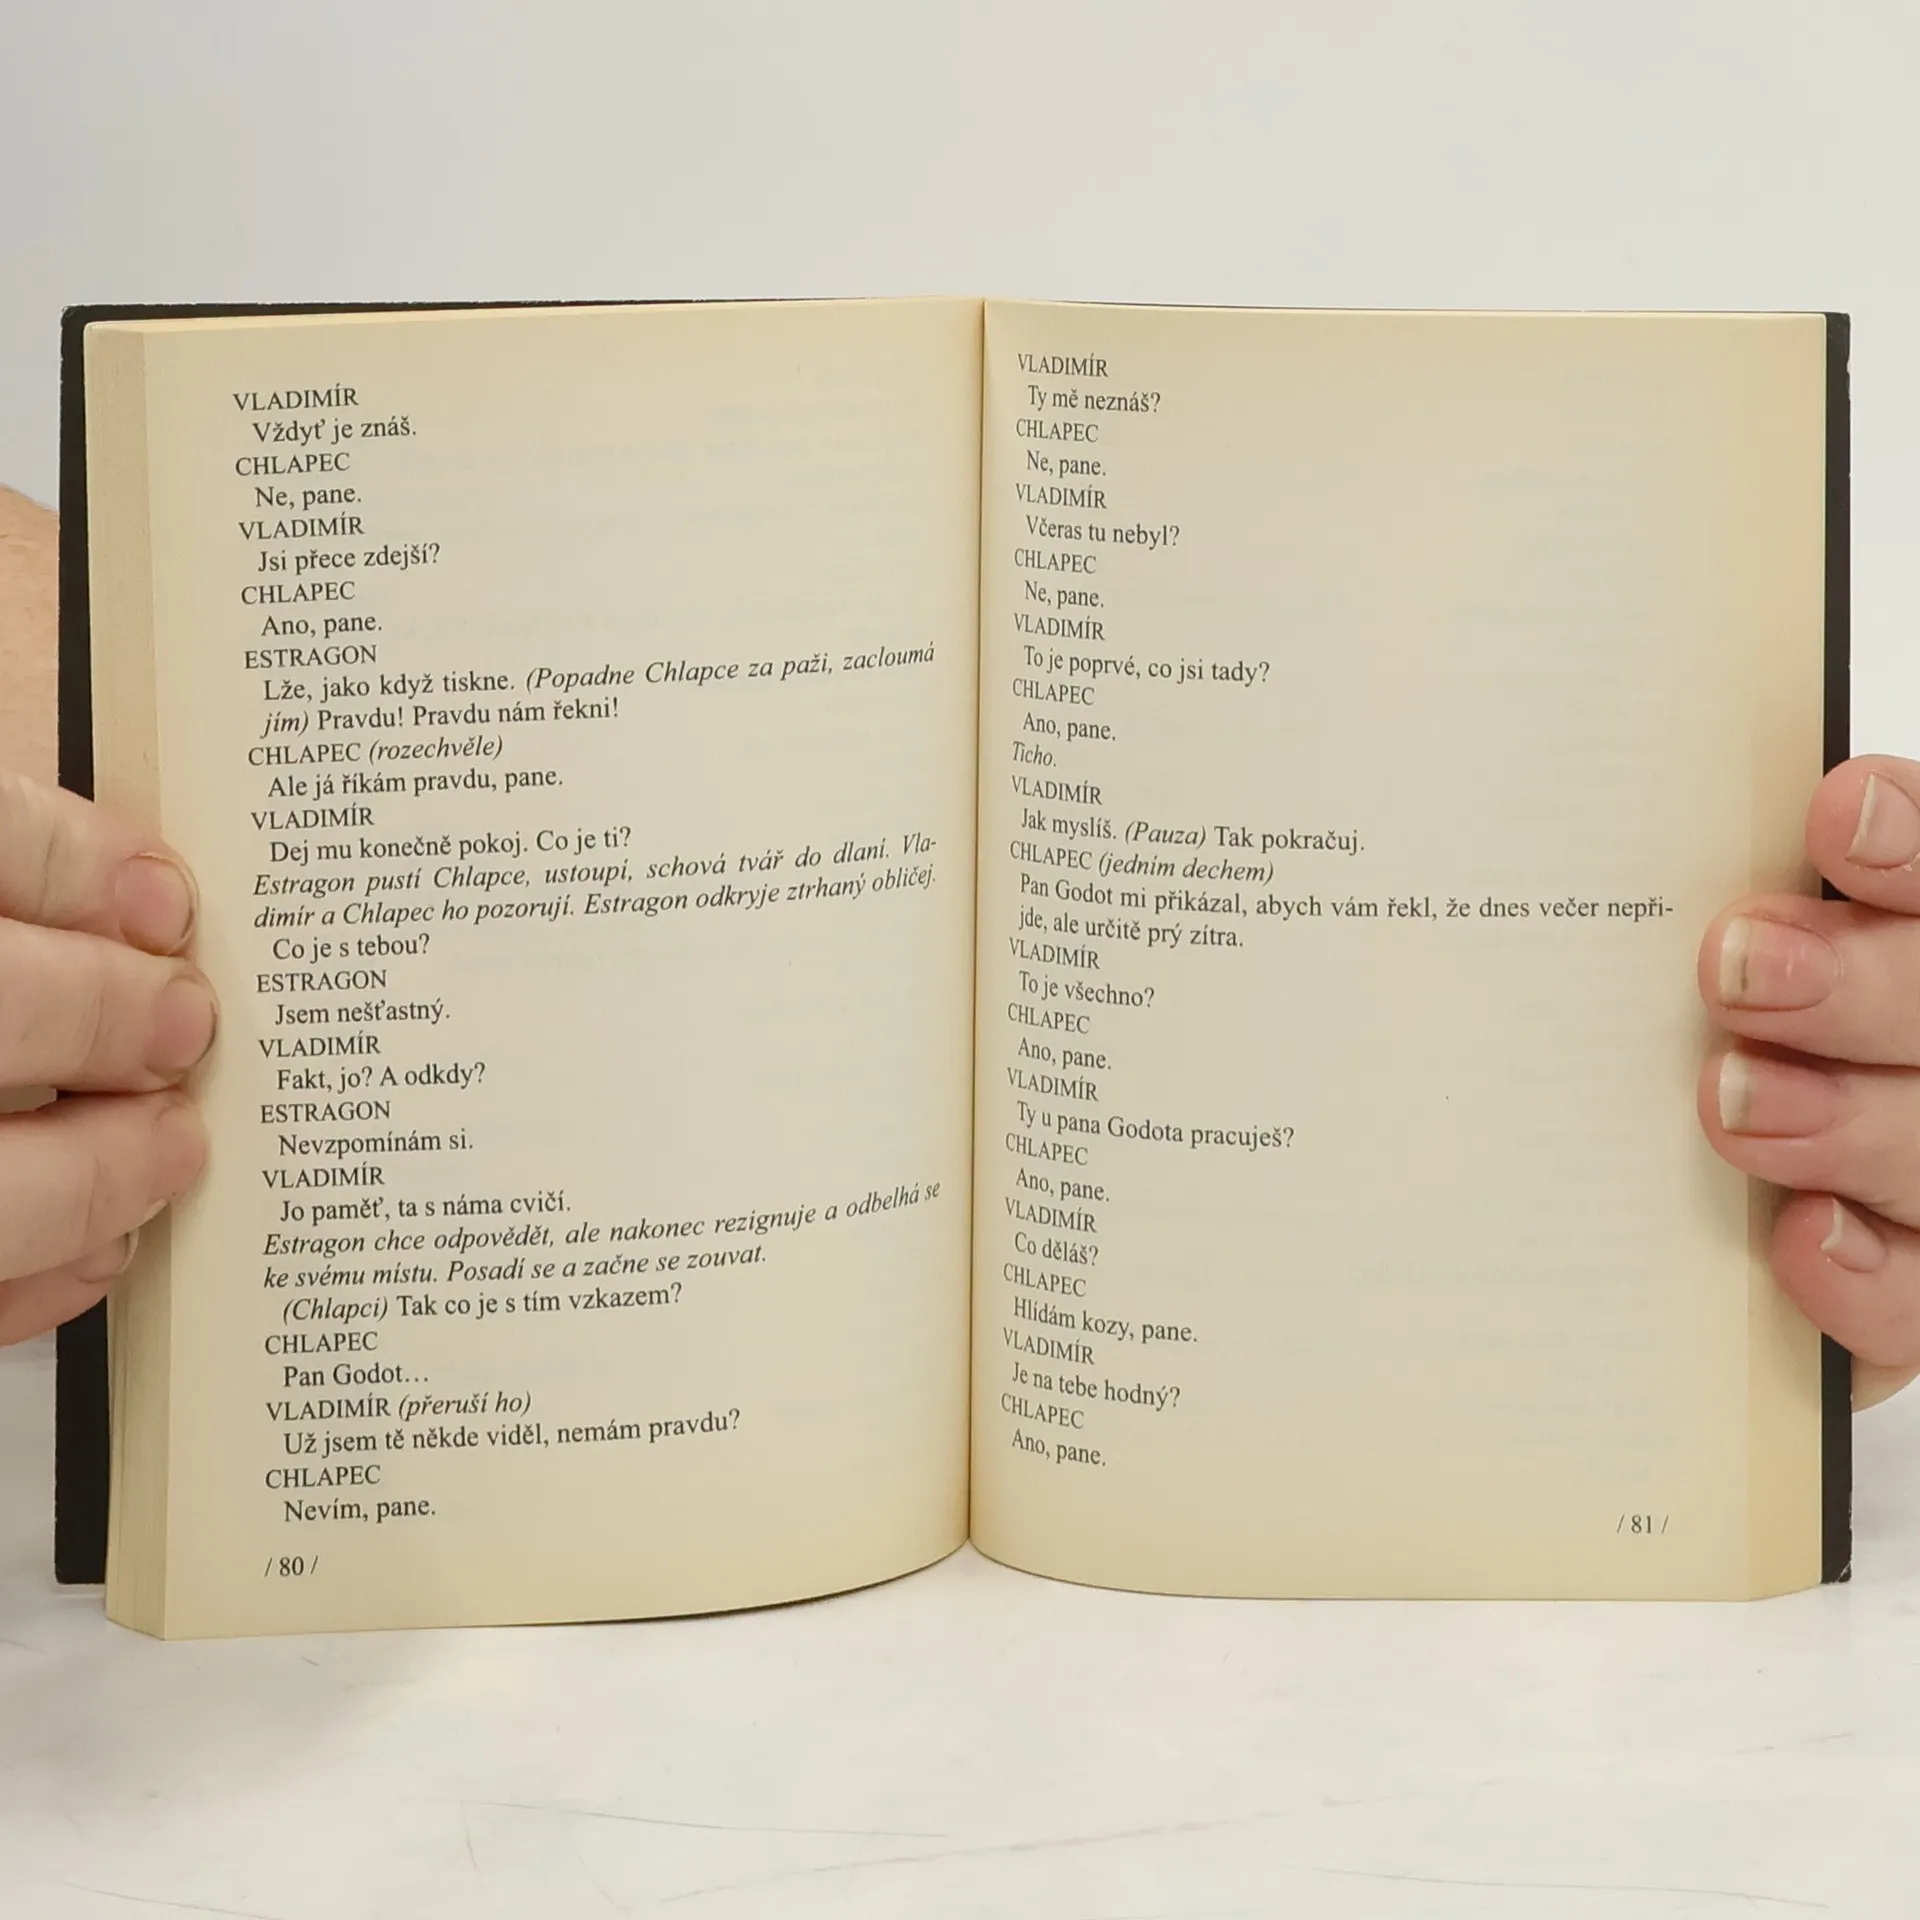 VLADIMÍR
Vždyť je znáš.
CHLAPEC
Ne, pane.
VLADIMÍR
Jsi přece zdejší?
CHLAPEC
Ano, pane.
ESTRAGON
Lže, jako když tiskne. (Popadne Chlapce za paži, zacloumá
jím) Pravdu! Pravdu nám řekni!
CHLAPEC (rozechvěle)
Ale já říkám pravdu, pane.
VLADIMÍR
Dej mu konečně pokoj. Co je ti?
Estragon pustí Chlapce, ustoupí, schová tvář do dlaní. Vla-
dimír a Chlapec ho pozorují. Estragon odkryje ztrhaný obličej.
Co je s tebou?
ESTRAGON
Jsem nešťastný.
VLADIMÍR
Fakt, jo? A odkdy?
ESTRAGON
Nevzpomínám si.
VLADIMÍR
Jo paměť, ta s náma cvičí.
Estragon chce odpovědět, ale nakonec rezignuje a odbelhá se
ke svému místu. Posadí se a začne se zouvat.
(Chlapci) Tak co je s tím vzkazem?
CHLAPEC
Pan Godot…
VLADIMÍR (přeruší ho)
Už jsem tě někde viděl, nemám pravdu?
CHLAPEC
Nevím, pane.
/ 80 /
VLADIMÍR
Ty mě neznáš?
CHLAPEC
Ne, pane.
VLADIMÍR
Včeras tu nebyl?
CHLAPEC
Ne, pane.
VLADIMÍR
To je poprvé, co jsi tady?
CHLAPEC
Ano, pane.
Ticho.
VLADIMÍR
Jak myslíš. (Pauza) Tak pokračuj.
CHLAPEC (jedním dechem)
Pan Godot mi přikázal, abych vám řekl, že dnes večer nepři-
jde, ale určitě prý zítra.
VLADIMÍR
To je všechno?
CHLAPEC
Ano, pane.
VLADIMÍR
Ty u pana Godota pracuješ?
CHLAPEC
Ano, pane.
VLADIMÍR
Co děláš?
CHLAPEC
Hlídám kozy, pane.
VLADIMÍR
Je na tebe hodný?
CHLAPEC
Ano, pane.
/ 81 /